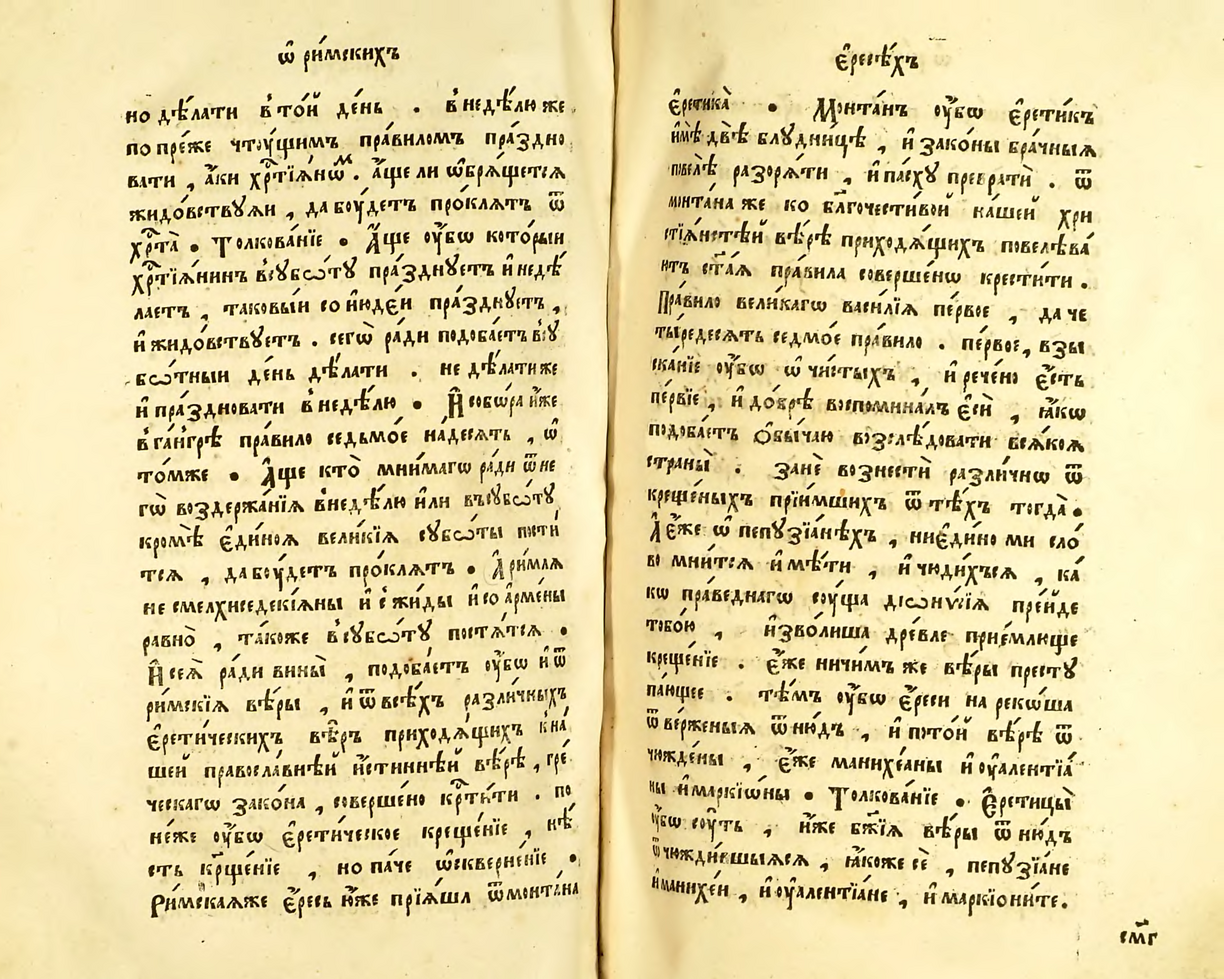 ѡ҃ ри́мскихъ
но дѣ́лати в̾то́й де́нь . в̾недѣ́лю же
по пре́же чтꙋ́щимъ пра́виломъ пра́здно
вати , а҆́ки хрⷭ҇тїѧ́нѡⷨ . а҆́ще ли ѡ҆брѧ́щетсѧ
жидо́вствꙋѧи , да бꙋ́детъ про́клѧтъ ѿ
хрⷭ҇та̀ • Толкова́нїе • А҆́ще ᲂу҆́бѡ кото́рыи
хрⷭ҇тїѧ́нинъ в̾сꙋбѡ́тꙋ пра́зднꙋетъ и҆ недѣ́
лаетъ , таковы́и со и҆юдє́и пра́зднꙋетъ ,
и҆ жидо́вствꙋетъ . сегѡ̀ ра́ди подоба́етъ в̾сꙋ
бѡ́тныи де́нь дѣ́лати . не дѣ́лати же
и҆ пра́здновати в̾недѣ́лю • И҆ собѡ́ра и҆́же
в̾га́нгрѣ пра́вило седьмо́е на́десѧть , ѡ҆
то́мже • А҆́ще кто̀ мни́магѡ ра́ди ѿ не
гѡ̀ воздержа́нїѧ в̾недѣ́лю и҆ли въсꙋбѡ́тꙋ
кромѣ̀ є҆ди́ноѧ вели́кїѧ сꙋбѡ́ты пости́
тсѧ , да бꙋ́детъ про́клѧтъ • А҆ ри́млѧ
не смелхиседекїѧ́ны и҆ с̾ жи́ды и҆ со а҆рме́ны
равно̀ , та́коже в̾сꙋбѡ́тꙋ постѧ́тсѧ •
И҆ сеѧ̀ ра́ди вины̀ , подоба́етъ ᲂу҆́бѡ и҆ ѿ
ри́мскїѧ вѣ́ры , и҆ ѿ всѣ́хъ разли́чныхъ
є҆рети́ческихъ вѣ́ръ приходѧ́щихъ к̾на́
шей правосла́внѣй и҆́стиннѣй вѣ́рѣ , гре́
ческагѡ зако́на , соверше́но крⷭ҇ти́ти . по
не́же ᲂу҆́бѡ є҆рети́ческое креще́нїе , нѣ́
сть кр҃ще́нїе , но па́че ѡ҆скверне́нїе •
Ри́мскаѧже є҆́ресь и҆́же прїѧ́ша ѿ монта́на
є҆́ресѣхъ
є҆ретика̀ • Монта́нъ ᲂу҆́бѡ є҆рети́къ
и҆мѣ̀ двѣ̀ блꙋдни́цѣ , и҆ зако́ны бра́чныѧ
повелѣ̀ разорѧ́ти , и҆ па́схꙋ превратѝ . ѿ
монта́на же ко бл҃гочести́вой на́шей хри
стїѧ́нстѣй вѣ́рѣ приходѧ́щихъ повелѣва́
итъ ст҃а́ѧ пра́вила соверше́нѡ крести́ти .
Пра́вило вели́кагѡ васи́лїѧ пе́рвое , да че
ты́редесѧть седмо́е пра́вило . пе́рвое , взы
ска́нїе ᲂу҆́бѡ ѡ҆ чи́стыхъ , и҆ рече́но є҆́сть
пе́рвїе , и҆ до́брѣ воспомина́лъ є҆сѝ , ꙗ҆́кѡ
подоба́етъ ѻ҆бы́чаю возслѣ́довати всѧ́коѧ
страны̀ . занѐ вознестѝ разли́чнѡ ѿ
креще́ныхъ прїи́мшихъ ѿ тѣ́хъ тогда̀ •
А҆ є҆́же ѡ҆ пепꙋзїа́нѣхъ , ниє҆ди́но ми сло́
во мни́тсѧ и҆мѣ́ти , и҆ чюди́хъсѧ , ка́
кѡ пра́веднагѡ сꙋ́ща дїѡни́сїѧ пре́йде
тобо́ю , и҆зво́лиша дре́вле прїе́млюще
креще́нїе . є҆́же ничи́мъ же вѣ́ры престꙋ
па́ющее . тѣ́мъ ᲂу҆́бѡ є҆́реси на реко́ша
ѿве́рженыѧ ѿню́дъ , и҆ потой вѣ́рѣ ѿ
чюжде́ны , є҆́же манихе́аны и҆ ᲂу҆алентїа́
ны и҆ маркїѡ́ны • Толкова́нїе • Є҆ретицы̀
ᲂу҆́бѡ сꙋ́ть , и҆́же бж҃їѧ вѣ́ры ѿню́дъ
ѿчюжди́вшыѧсѧ , ꙗ҆́коже сѐ , пепꙋзїа́не
и҆ манихе́и , и҆ ᲂу҆алентїа́не , и҆ маркїони́те .
смг҃